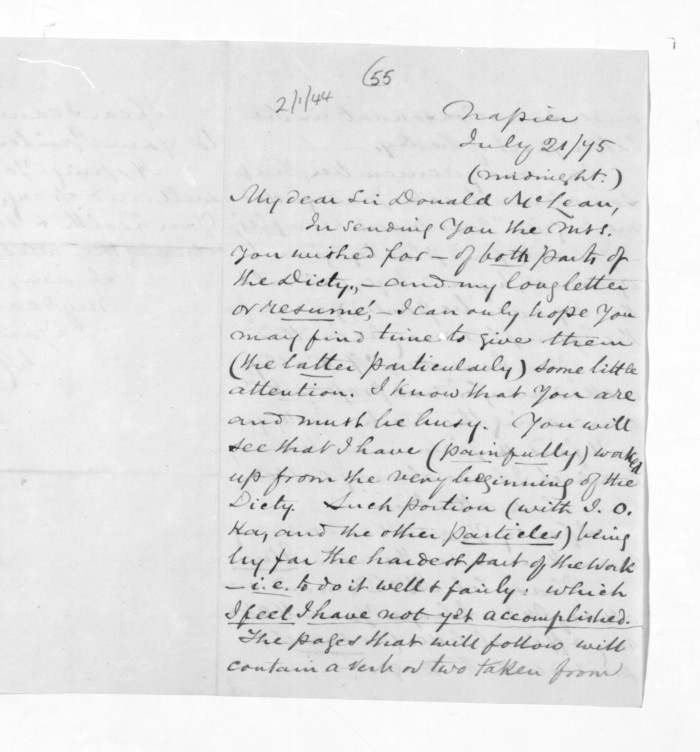 55
2/1/44
Napier
July 21/75
(midnight.)
My dear Sir Donald McLean,
In sending You the Mss.
You wished for – of both parts of
the Dicty., – and my long letter
or resumé, – I can only hope You
may find time to give them
(the latter particularly) some little
attention. I know that You are
and must be busy. You will
see that I have (painfully) worked
up from the very beginning of the
Dicty. Such portion (with I. O.
Ka, and the other particles) being
by far the hardest part of the work
– i.e. to do it well & fairly: which
I feel I have not yet accomplished.
The pages that will follow will
contain a verb or two taken from